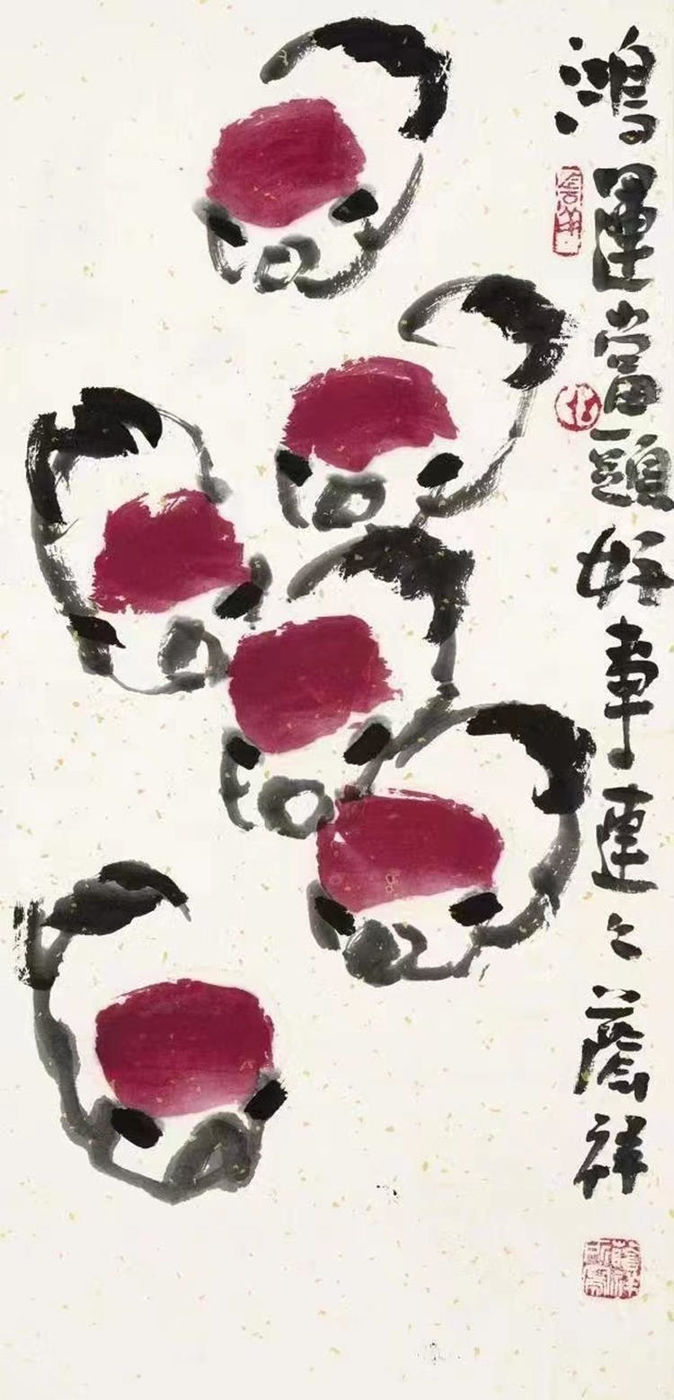 鴻運當頭好事連々蔭祥